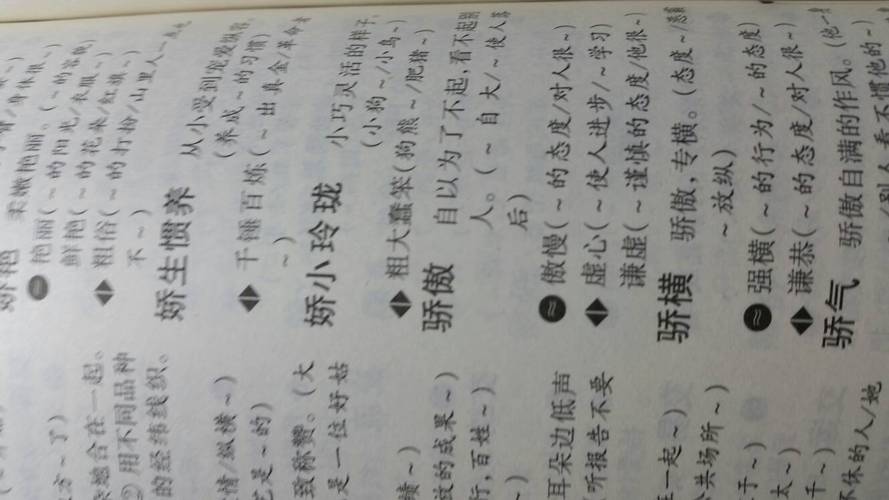 娇艳 柔嫩艳丽。(~的容貌)
艳丽(~的阳光/衣服~)
鲜艳(~的花朵/红旗~)
粗俗(~的打扮/山里人一点也
不~)
娇生惯养 从小受到宠爱纵容。
(养成~的习惯)
千锤百炼(~出真金/革命者
~)
娇小玲珑 小巧灵活的样子。
(小狗~/小鸟~)
粗大蠢笨(狗熊~/肥猪~)
骄傲 自以为了不起,看不起别
人。(~自大/~使人落
后)
≈ 傲慢(~的态度/对人很~)
虚心(~使人进步/~学习)
谦虚(~谨慎的态度/他很~)
骄横 骄傲,专横。(态度~/
~放纵)
≈ 强横(~的行为/~的态度)
谦恭(~的态度/对人很~)
骄气 骄傲自满的作风。(他一
别人看不惯他的~
方~了)
杂地合在一起。
②用不同品种
的经纬线织。
情/纵横~)
是~的)
致称赞。(大
是一位好姑
绩~)
的成果~)
行,百姓~)
~)
耳朵边低声
听报告不要
在一起~)
共场所~)
于~)
太~)
千~)
休的人/她